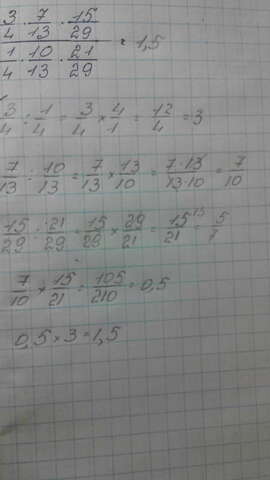 3/4 · 7/13 · 15/29
1/4 · 10/13 · 21/29
1,5
3/4 : 1/4 = 3/4 × 4/1 = 12/4 = 3
7/13 : 10/13 = 7/13 × 13/10 = 7·13/13·10 = 7/10
15/29 : 21/29 = 15/29 × 29/21 = 15/21 = 5/7
7/10 × 15/21 = 105/210 = 0,5
0,5 × 3 = 1,5